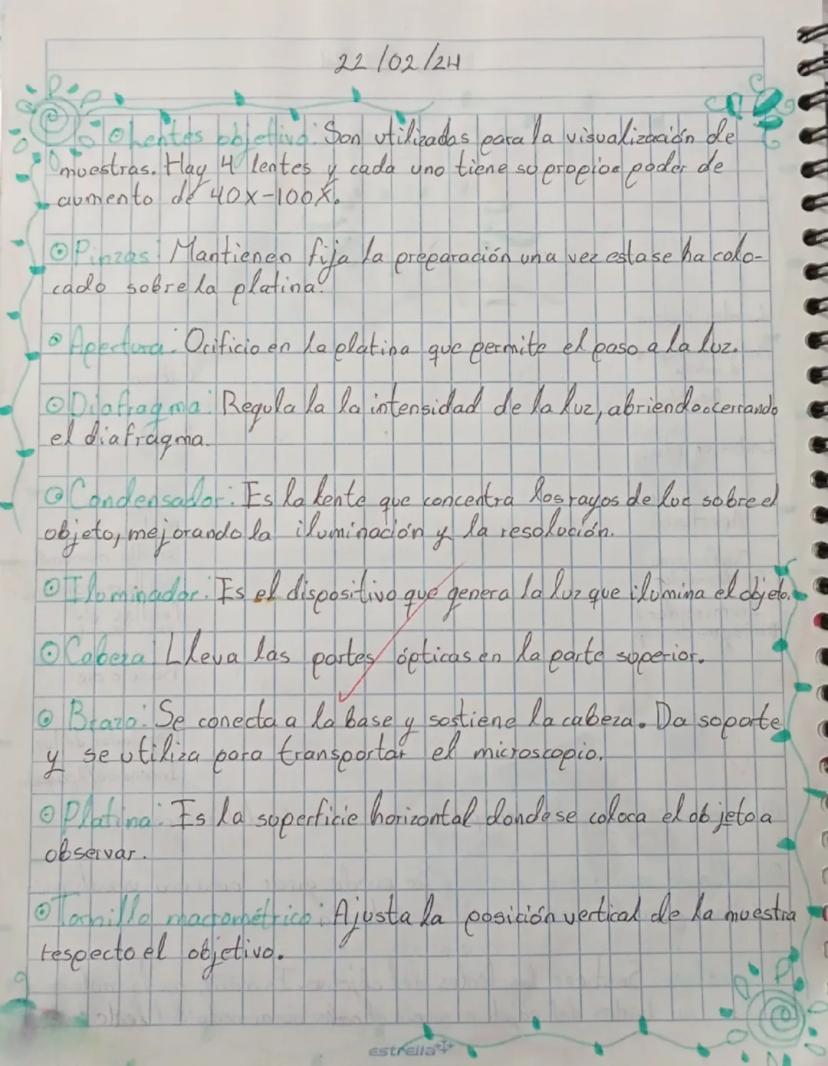 22/02/24
Lentes objetivo: Son utilizadas para la visualización de
muestras. Hay 4 lentes y cada uno tiene su propioe poder de
aumento de 40X-100X.
Pinzas: Mantienen fija la preparación una vez esta se ha colo-
cado sobre la platina.
Apertura: Orificio en la platina que permite el paso a la luz.
Diafragma: Regula la la intensidad de la luz, abriendo o cerrando
el diafragma.
Condensador: Es la lente que concentra los rayos de luz sobre el
objeto, mejorando la iluminación y la resolución.
Iluminador: Es el dispositivo que genera la luz que ilumina el objeto.
Cabeza: Lleva las partes ópticas en la parte superior.
Brazo: Se conecta a la base y sostiene la cabeza. Da soporte
y se utiliza para transportar el microscopio.
Platina: Es la superficie horizontal donde se coloca el objeto a
observar.
Tornillo macrométrico: Ajusta la posición vertical de la muestra
respecto el objetivo.
estrella